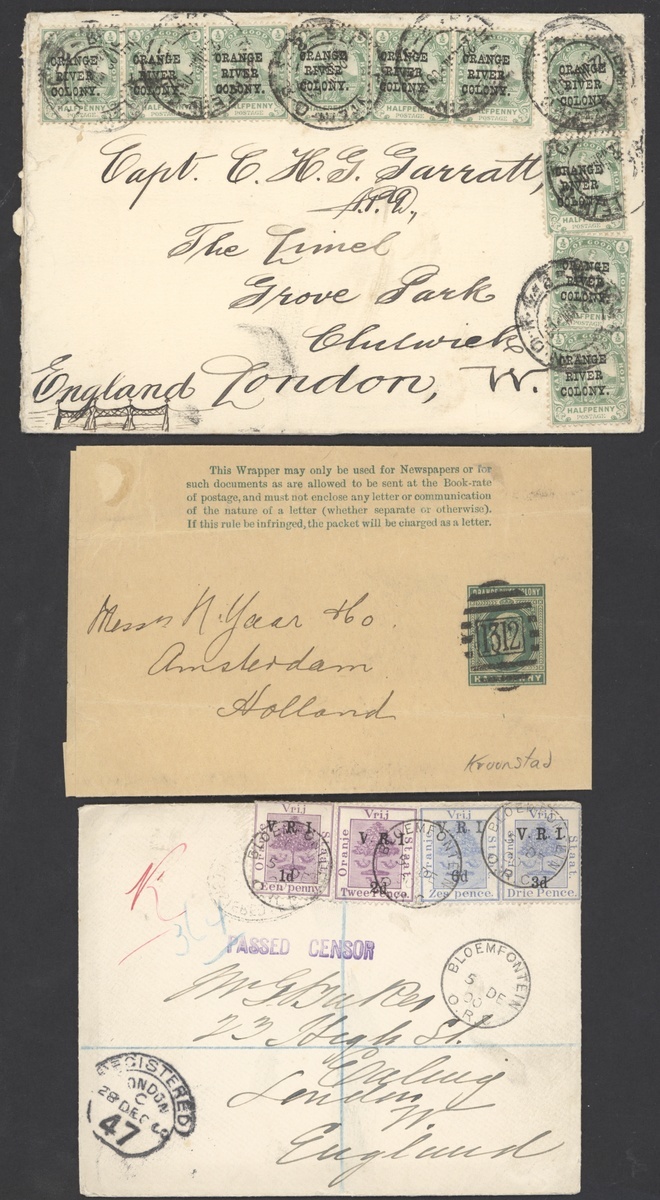 ORANGE RIVER COLONY. ORANGE RIVER COLONY. ORANGE RIVER COLONY. ORANGE RIVER COLONY. ORANGE RIVER COLONY. ORANGE RIVER COLONY. ORANGE RIVER COLONY.
HALFPENNY HALFPENNY HALFPENNY HALFPENNY HALFPENNY HALFPENNY
POSTAGE POSTAGE POSTAGE POSTAGE POSTAGE POSTAGE
Capt. C. H. G. Garratt,
A.P.D.,
The Limes
Grove Park
Chiswick
England London, W.
ORANGE RIVER COLONY.
HALFPENNY
POSTAGE
ORANGE RIVER COLONY.
HALFPENNY
POSTAGE
ORANGE RIVER COLONY.
HALFPENNY
POSTAGE
This Wrapper may only be used for Newspapers or for
such documents as are allowed to be sent at the Book-rate
of postage, and must not enclose any letter or communication
of the nature of a letter (whether separate or otherwise).
If this rule be infringed, the packet will be charged as a letter.
1312
HALFPENNY
Messrs H. Yaar & Co.
Amsterdam
Holland
Kroonstad
Vrij Vrij Vrij Vrij
V.R.I. V.R.I. V.R.I. V.R.I.
Oranje Staat.
1d 2d 6d 3d
Een penny. Twee Pence. Zes pence. Drie Pence.
R
364
PASSED CENSOR
BLOEMFONTEIN
5 DE
00
O.R.C.
Mr G.
23 High St.
Ealing
London
W.
England
REGISTERED
LONDON
C
28 DEC 00
47